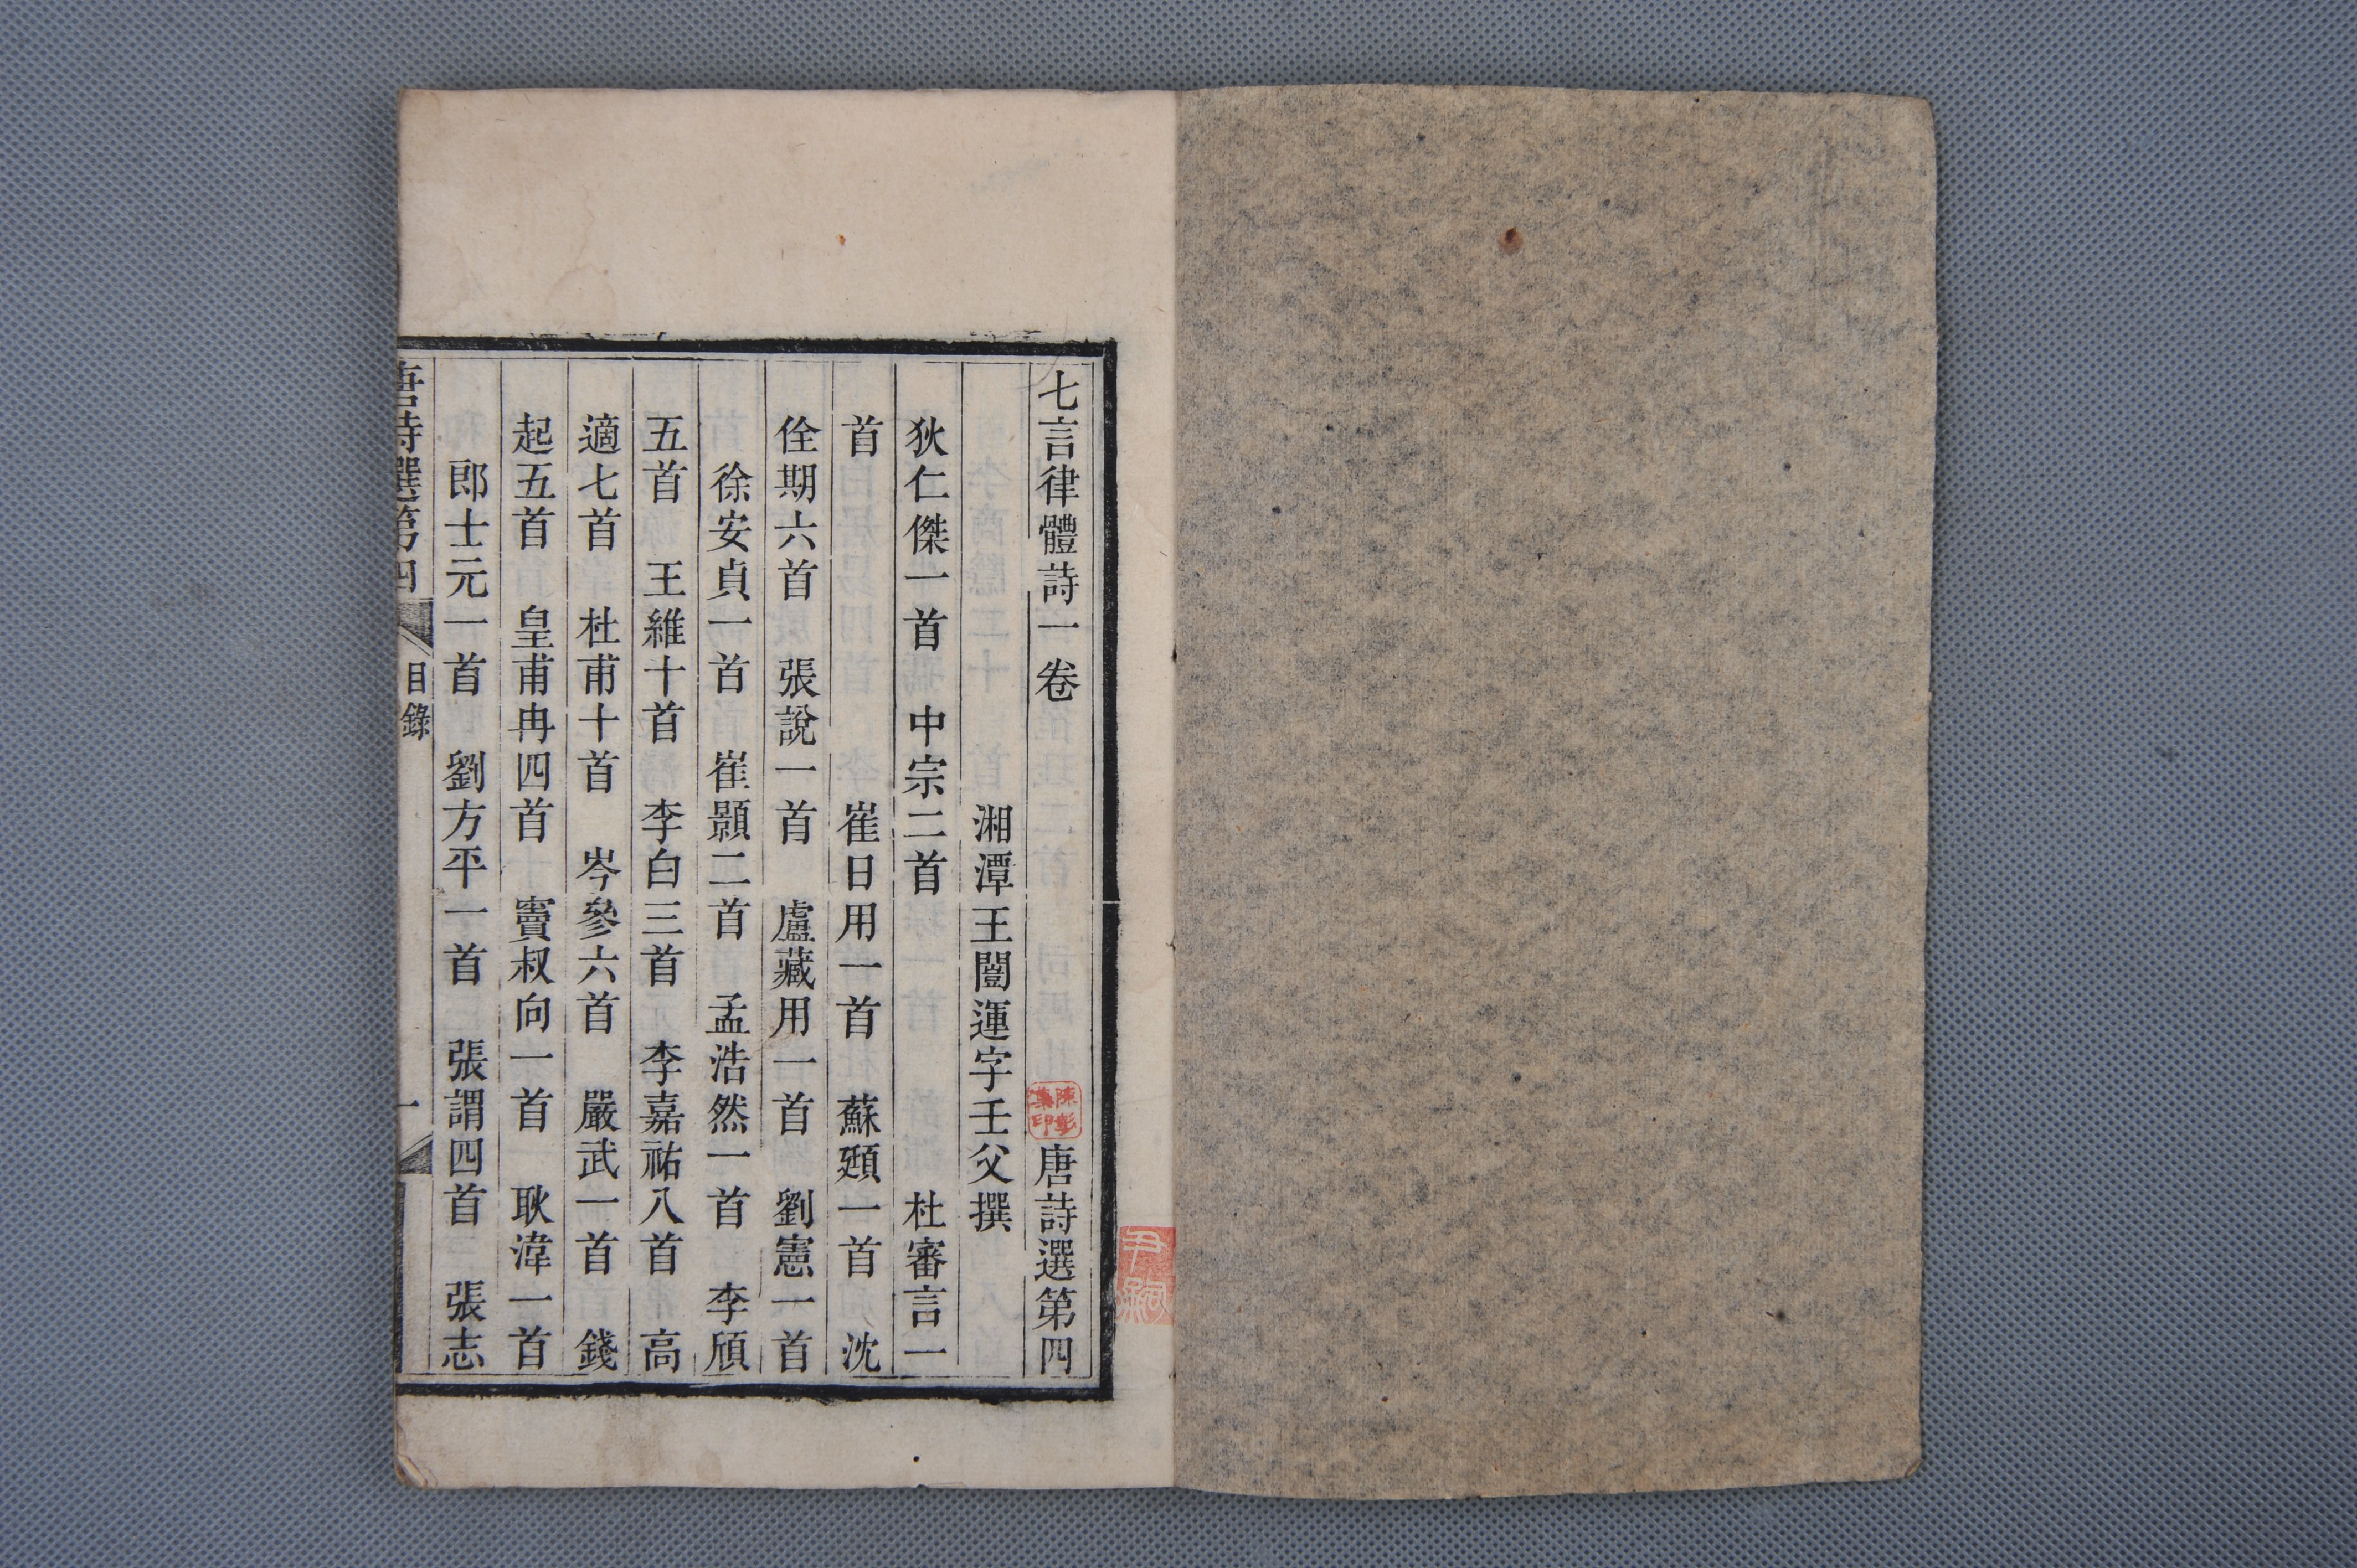 七言律體詩一卷 唐詩選第四
湘潭王闓運字壬父撰
狄仁傑一首 中宗二首 杜審言一
首 崔日用一首 蘇頲一首 沈
佺期六首 張說一首 盧藏用一首 劉憲一首
徐安貞一首 崔顥二首 孟浩然一首 李頎
五首 王維十首 李白三首 李嘉祐八首 高
適七首 杜甫十首 岑參六首 嚴武一首 錢
起五首 皇甫冉四首 竇叔向一首 耿湋一首
郎士元一首 劉方平一首 張謂四首 張志
唐詩選第四 目錄 一
陳彭
集印